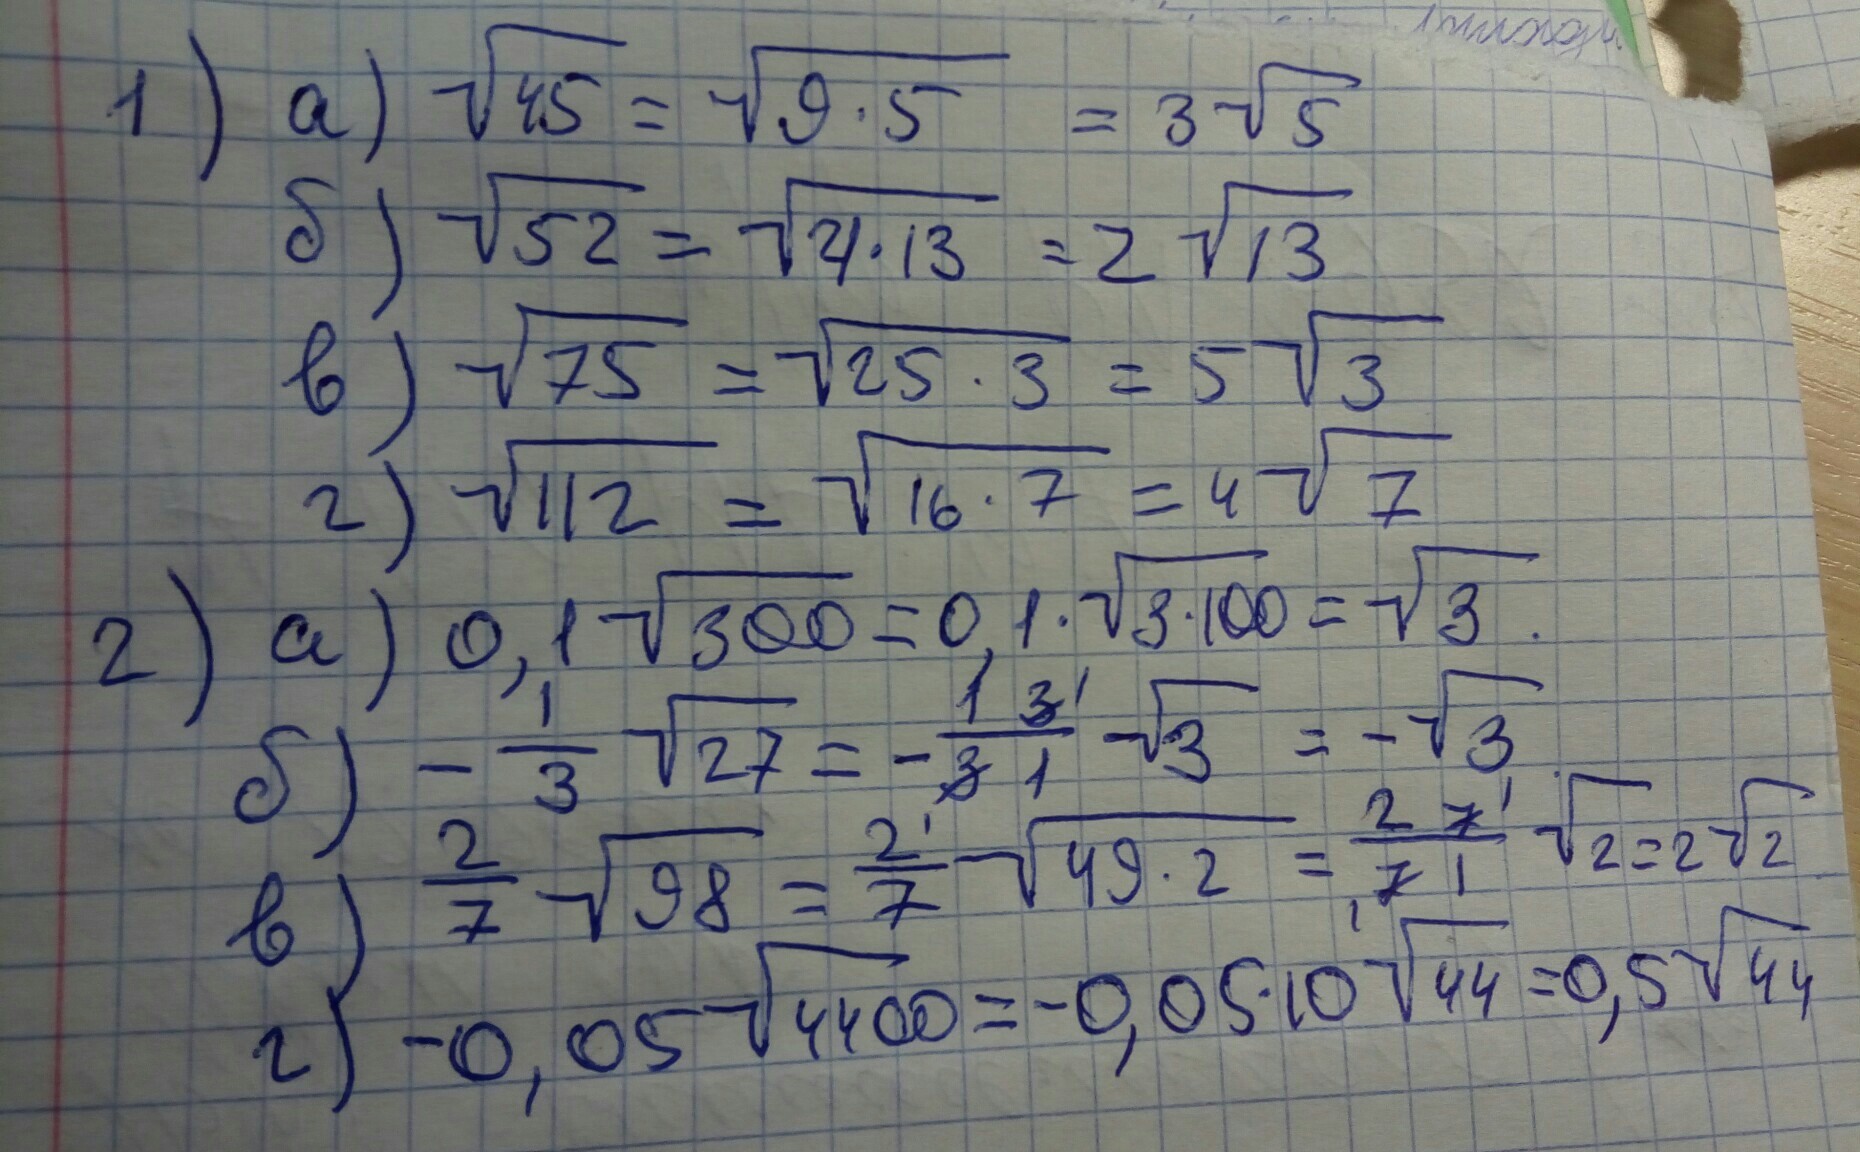 1) а) √45 = √9·5 = 3√5
б) √52 = √4·13 = 2√13
в) √75 = √25·3 = 5√3
г) √112 = √16·7 = 4√7
2) а) 0,1√300 = 0,1·√3·100 = √3.
б) -1/3 √27 = -1 3/3 1 √3 = -√3
в) 2/7 √98 = 2/7 √49·2 = 2 7/7 1 √2 = 2√2
г) -0,05√4400 = -0,05·10√44 = 0,5√44